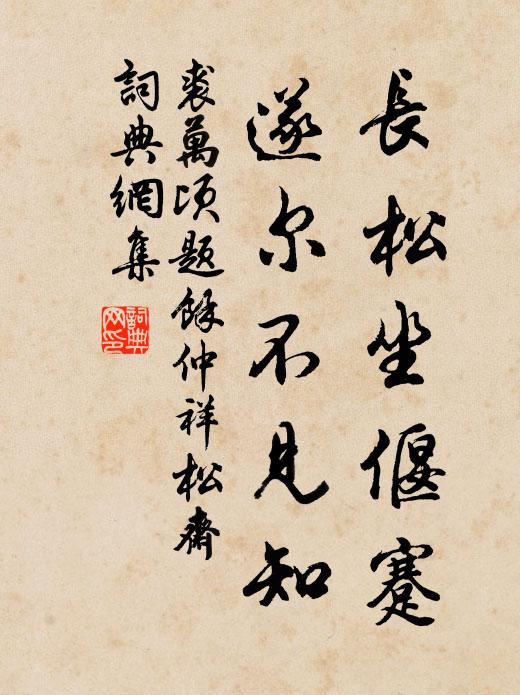 長松坐偃蹇
遂尔不見知
裘萬頃題餘仲祥松齋
詞典網集
詞典
网印